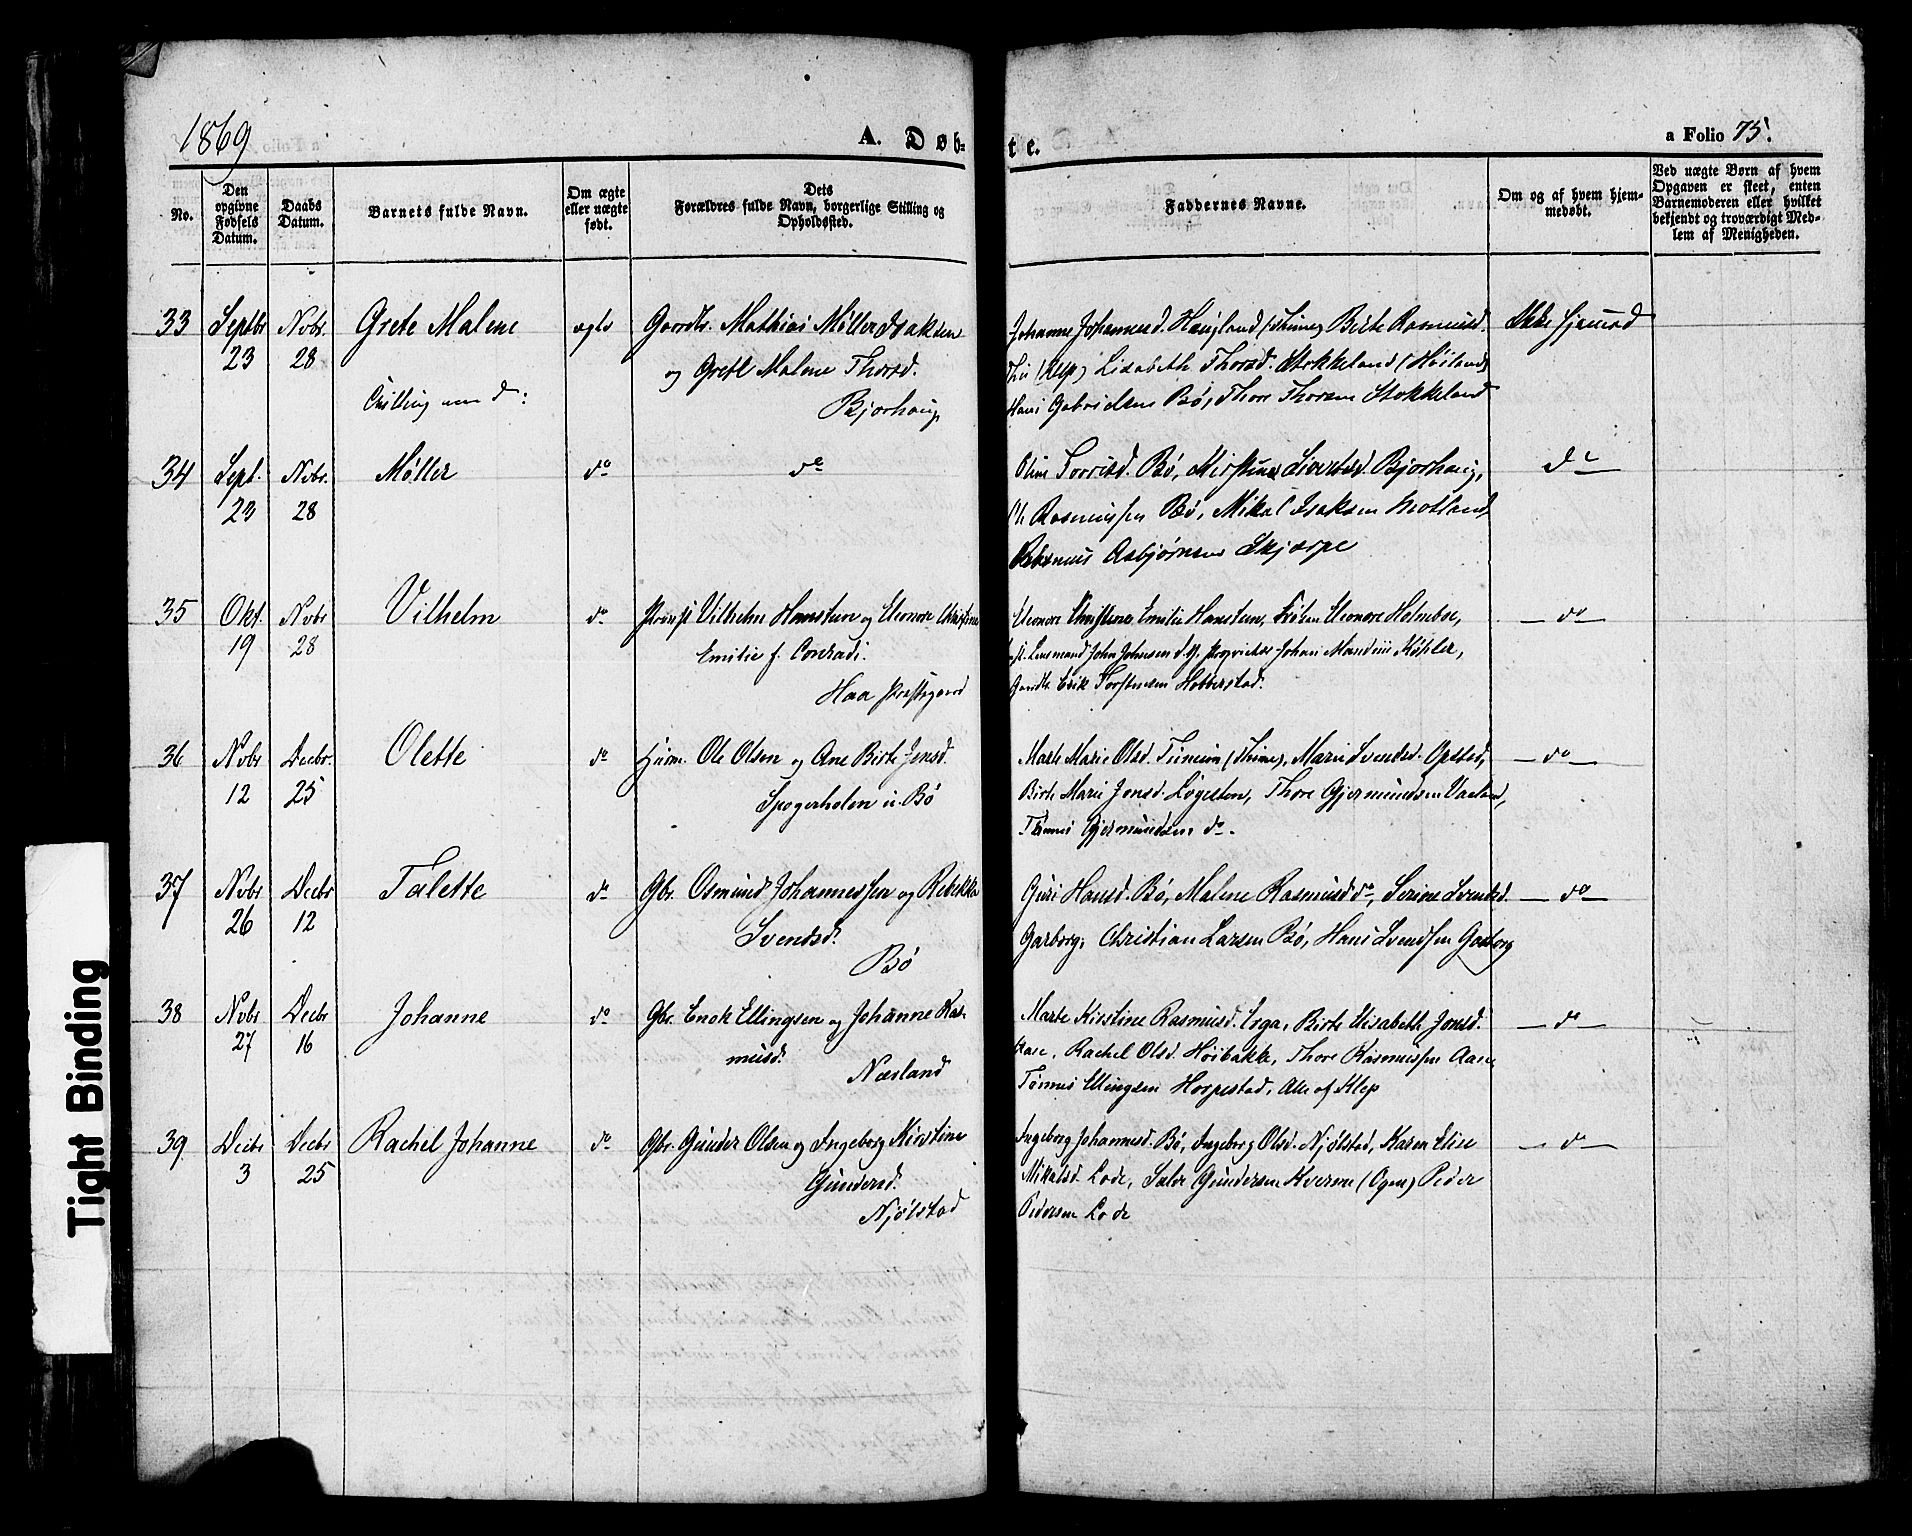 1869
A. Døb-
te.
a Folio 75.
No.
Den opgivne Fødsels Datum.
Daabs Datum.
Barnets fulde Navn.
Om ægte eller uægte født.
Dets Forældres fulde Navn, borgerlige Stilling og Opholdssted.
Faddernes Navne.
Om og af hvem hjemmedøbt.
Ved uægte Børn af hvem Opgaven er skeet, enten Barnemoderen eller hvilket bekjendt og troværdigt Medlem af Menigheden.
33 Septbr 23 Nvbr. 28 Grete Malene ægte Gaardbr. Mathias Møller Isaksen
og Grete Malene Thorsd.
Bjorhaug
Johanne Johannesd. Haugland (Thime) Birte Rasmusd.
Thu (Klep) Lisabeth Thorsd. Stokkeland (Høiland)
Hans Gabrielsen Bø, Thore Thorsen Stokkeland
Ikke hjemed
34 Sept. 23 Nvbr. 28 Møller do do
Oline Torrisd. Bø, Kirstine Sivertsd. Bjorhaug,
Ole Rasmussen Bø, Mikal Isaksen Motland
Rasmus Asbjørnsen Skjærpe
do
35 Okt. 19 Nvbr 28 Vilhelm do Provst Vilhelm Hansteen og Eleonore Christine
Emilie f. Conradi.
Haa Præstegaard
Eleonore Christine Emilie Hansteen, Frøken Eleonore Holmboe,
Lensmand John Johnsen Proprietær Johan Mandius Køhler,
Gaardbr. Erik Torstensen Hobberstad.
do
36 Nvbr 12 Decbr. 25 Olette do Husm. Ole Olsen og Ane Birte Jonsd.
u. Bø
Marte Marie Olsd. Tunheim (Thime), Marie Svendsd. Opstad,
Birte Marie Jonsd. Løgesten, Thore Gjermundsen Vaaland,
Tønnes Gjermundsen do.
do
37 Nvbr 26 Decbr 12 Talette do Gbr. Osmund Johannessen og Rebekka
Svendsd.
Bø
Guri Hansd. Bø, Malene Rasmusd do, Serine Svendsd.
Garborg, Christian Larsen Bø, Hans Svendsen Garborg
do
38 Nvbr 27 Decbr 16 Johanne do Gbr. Enok Ellingsen og Johanne Ras-
musd.
Næsland
Marte Kirstine Rasmusd. Erga, Birte Elisabeth Jonsd.
Aase, Rachel Olsd. Høibakke, Thore Rasmussen Aase
Tønnes Ellingsen Horpestad, Alle af Klep
do
39 Decbr 3 Decbr 25 Rachel Johanne do Gbr. Gunder Olsen og Ingeborg Kirstine
Gundersd.
Njølstad
Ingeborg Johannesd. Bø, Ingeborg Olsd. Njølstad, Karen Elise
Mikalsd. Lode, Salve Gundersen Kverme (Ogne) Peder
Pedersen Lode
do
Tvilling med do:
Tight Binding